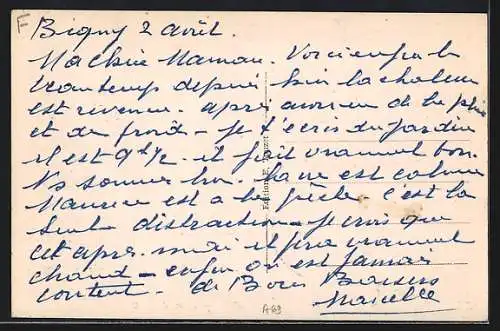 F
Bigny 2 avril.
Ma chère Maman. Voici enfin le
beau temps depuis hier la chaleur
est revenue. après avoir eu de la pluie
et du froid - je t'écris du jardin
il est 9h 1/2. il fait vraiment bon.
Ns sommes la vie est calme
Maurice est à la pêche c'est la
seule distraction - je crois que
cet après. midi il fera vraiment
chaud - enfin on est jamais
content. de Bons Baisers
Marcelle
A69